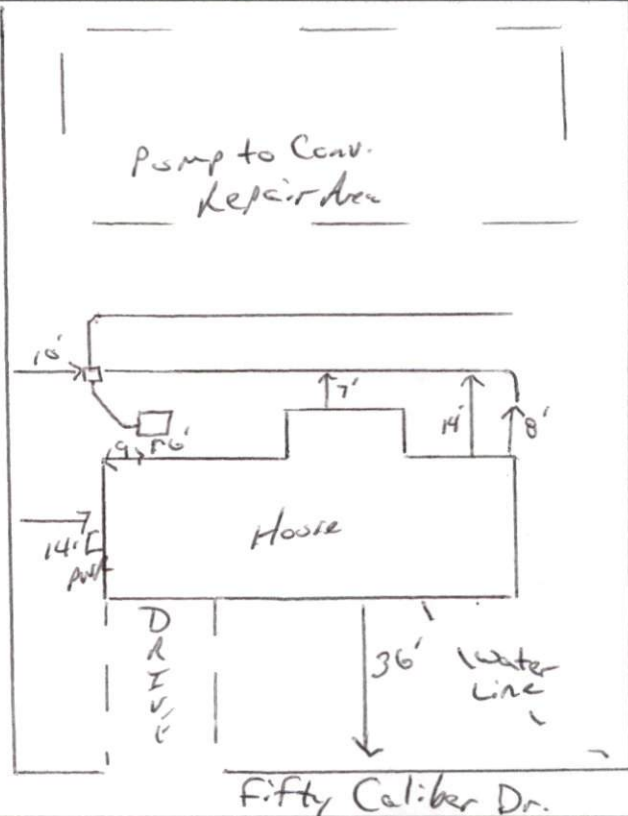 Pump to Conv.
Repair Area
10'
7'
14'
8'
9
6'
House
14'
DRIVE
36'
Water
Line
Fifty Caliber Dr.